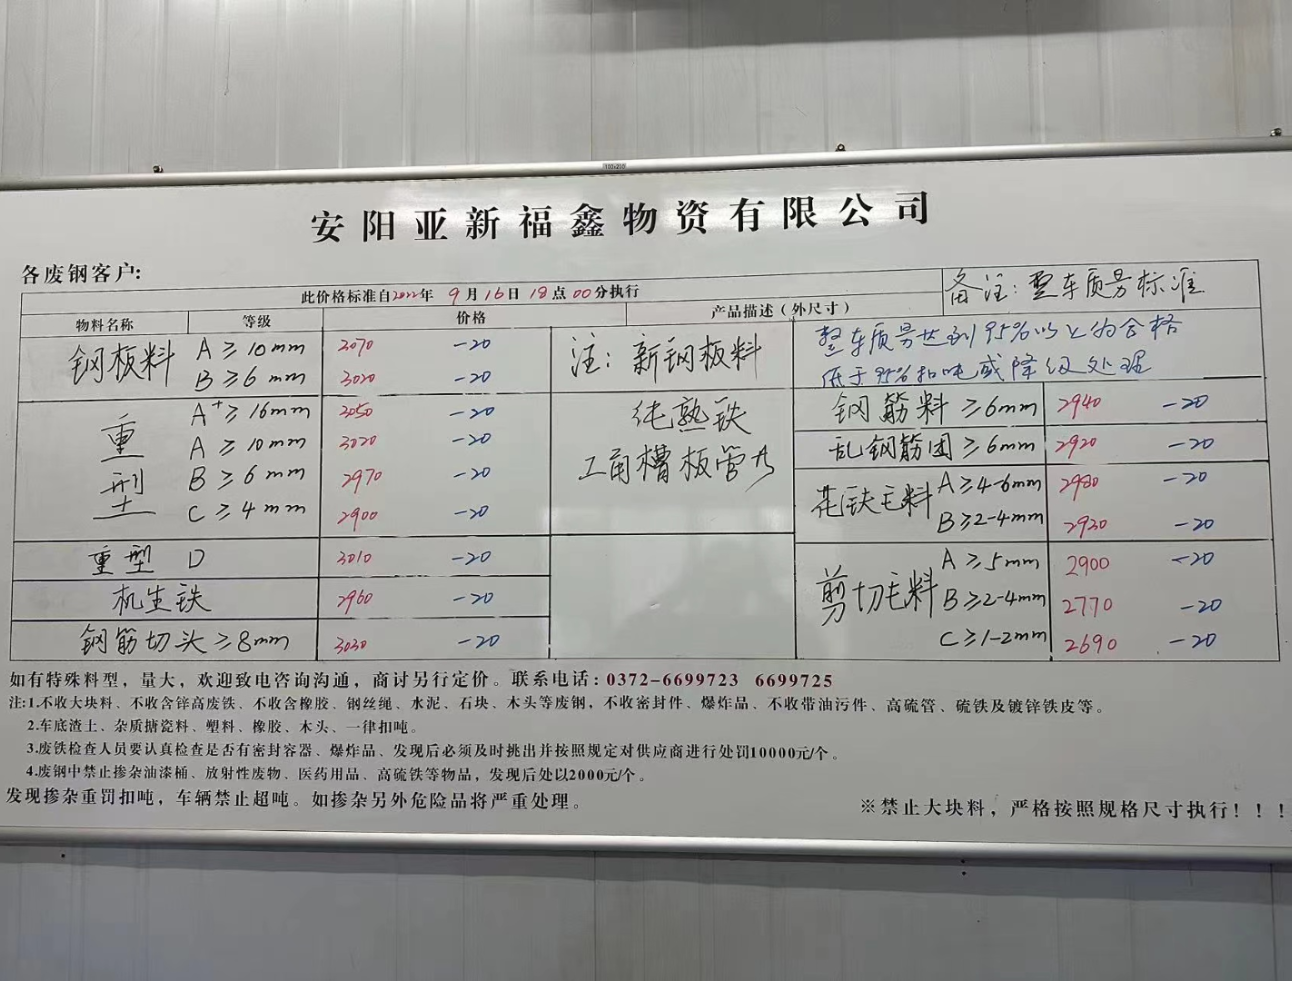 安阳亚新福鑫物资有限公司
各废钢客户:
此价格标准自2022年 9月16日 18点00分执行
备注: 整车质量标准
物料名称 等级 价格 产品描述（外尺寸）
钢板料 A≥10mm 3070 -20
B≥6mm 3020 -20
重型 A+≥16mm 3050 -20
A≥10mm 3020 -20
B≥6mm 2970 -20
C≥4mm 2900 -20
重型 D 3010 -20
机生铁 2960 -20
钢筋切头≥8mm 3030 -20
注: 新钢板料
纯熟铁
工角槽板管
整车质量达到95%以上为合格
低于95%扣吨或降级处理
钢筋料≥6mm 2940 -20
乱钢筋团≥6mm 2920 -20
花铁毛料 A≥4-6mm 2980 -20
B≥2-4mm 2920 -20
剪切毛料 A≥5mm 2900 -20
B≥2-4mm 2770 -20
C≥1-2mm 2690 -20
如有特殊料型，量大，欢迎致电咨询沟通，商讨另行定价。联系电话: 0372-6699723 6699725
注:1.不收大块料、不收含锌高废铁、不收含橡胶、钢丝绳、水泥、石块、木头等废钢，不收密封件、爆炸品、不收带油污件、高硫管、硫铁及镀锌铁皮等。
2.车底渣土、杂质搪瓷料、塑料、橡胶、木头、一律扣吨。
3.废铁检查人员要认真检查是否有密封容器、爆炸品、发现后必须及时挑出并按照规定对供应商进行处罚10000元/个。
4.废钢中禁止掺杂油漆桶、放射性废物、医药用品、高硫铁等物品，发现后处以2000元/个。
发现掺杂重罚扣吨，车辆禁止超吨。如掺杂另外危险品将严重处理。
※禁止大块料，严格按照规格尺寸执行！！！